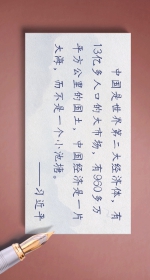 中国是世界第二大经济体，有
13亿多人口的大市场，有960多万
平方公里的国土，中国经济是一片
大海，而不是一个小池塘。
——习近平